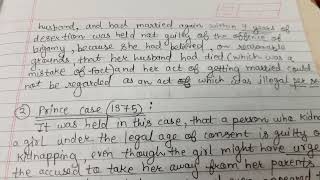 husband, and had married again within 7 years of
desertion was held not guilty of the offence of
bigamy, because she had believed, on reasonable
grounds, that her husband had died (which was a
mistake of fact) and her act of getting married could
not be regarded as an act of which was illegal per se.
② Prince case (1875) :
It was held in this case, that a person who kidn
a girl under the legal age of consent is guilty o
kidnapping, even though the girl might have urge
the accused to take her away from her parents